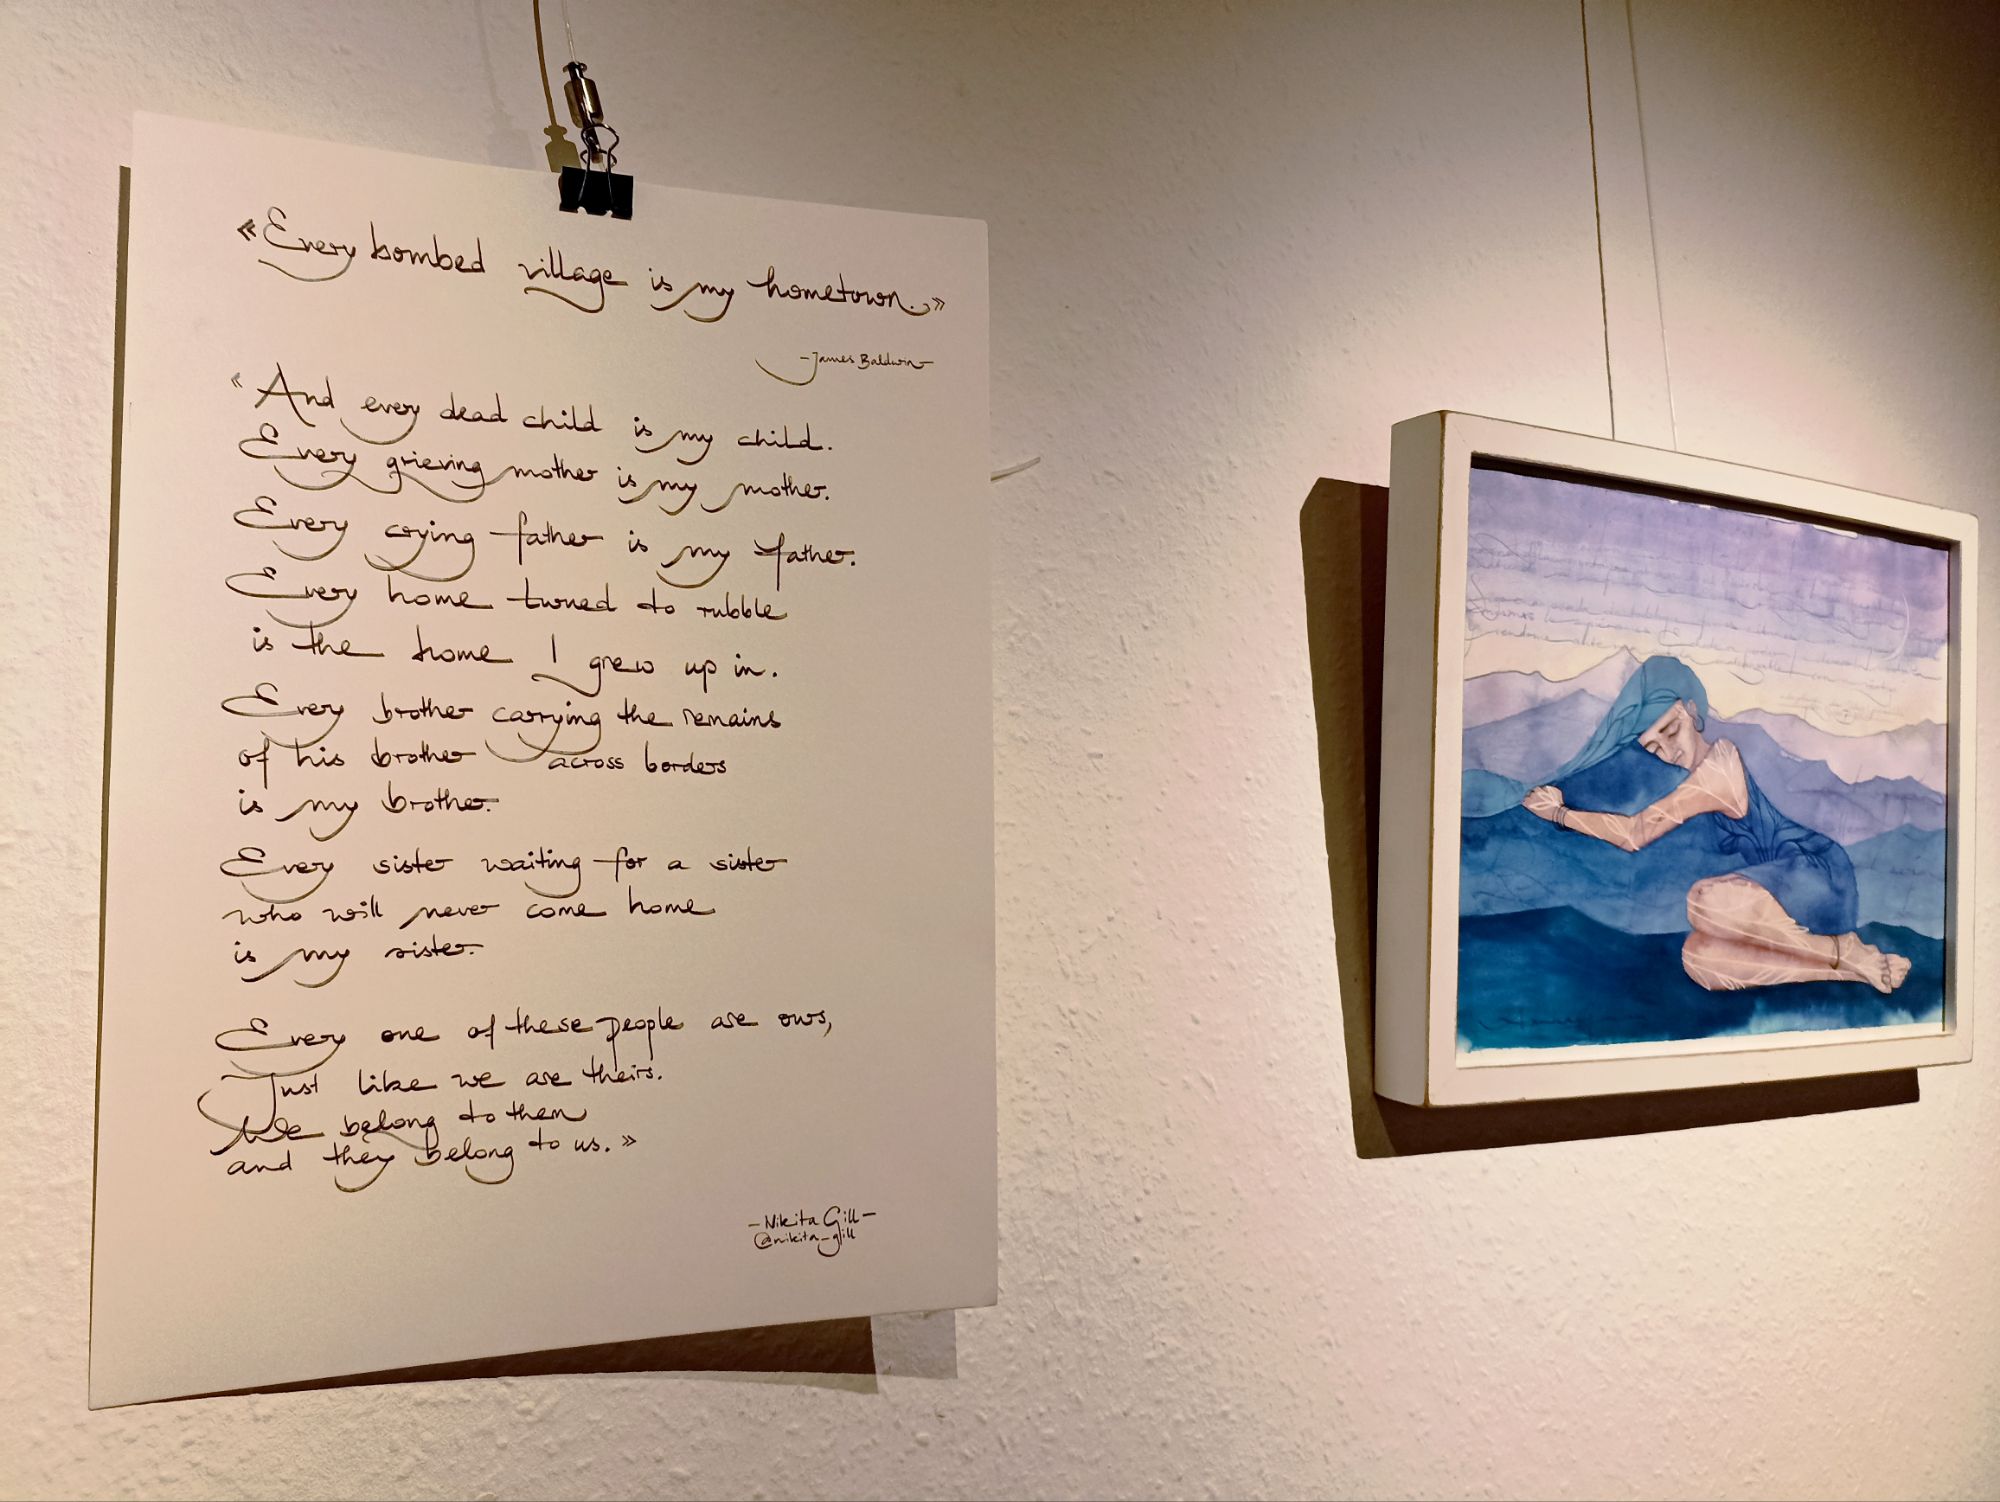 «Every bombed village is my hometown.»
-James Baldwin-
"And every dead child is my child.
Every grieving mother is my mother.
Every crying father is my father.
Every home turned to rubble
is the home I grew up in.
Every brother carrying the remains
of his brother across borders
is my brother.
Every sister waiting for a sister
who will never come home
is my sister.
Every one of these people are ours,
Just like we are theirs.
We belong to them
and they belong to us.»
-Nikita Gill-
@nikita_gill